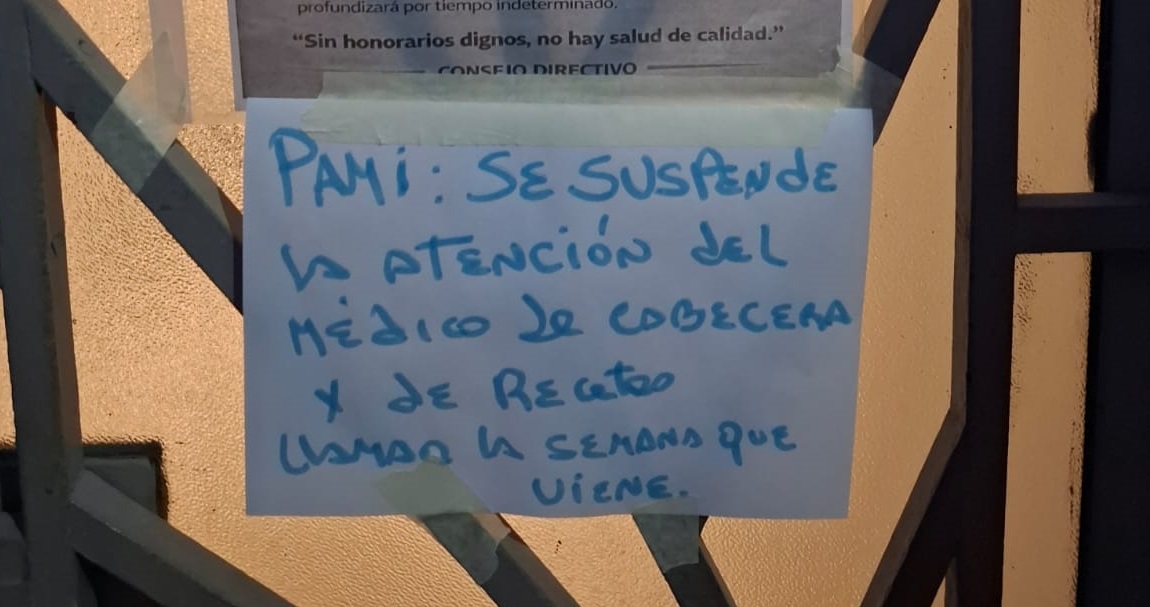 profundizará por tiempo indeterminado.
“Sin honorarios dignos, no hay salud de calidad.”
CONSEJO DIRECTIVO
PAMi: SE SUSPENdE
lA ATENCIÓN dEL
MÉdICO de CABECERA
Y dE RECetas
LLAMAR lA SEMANA QUE
ViENE.